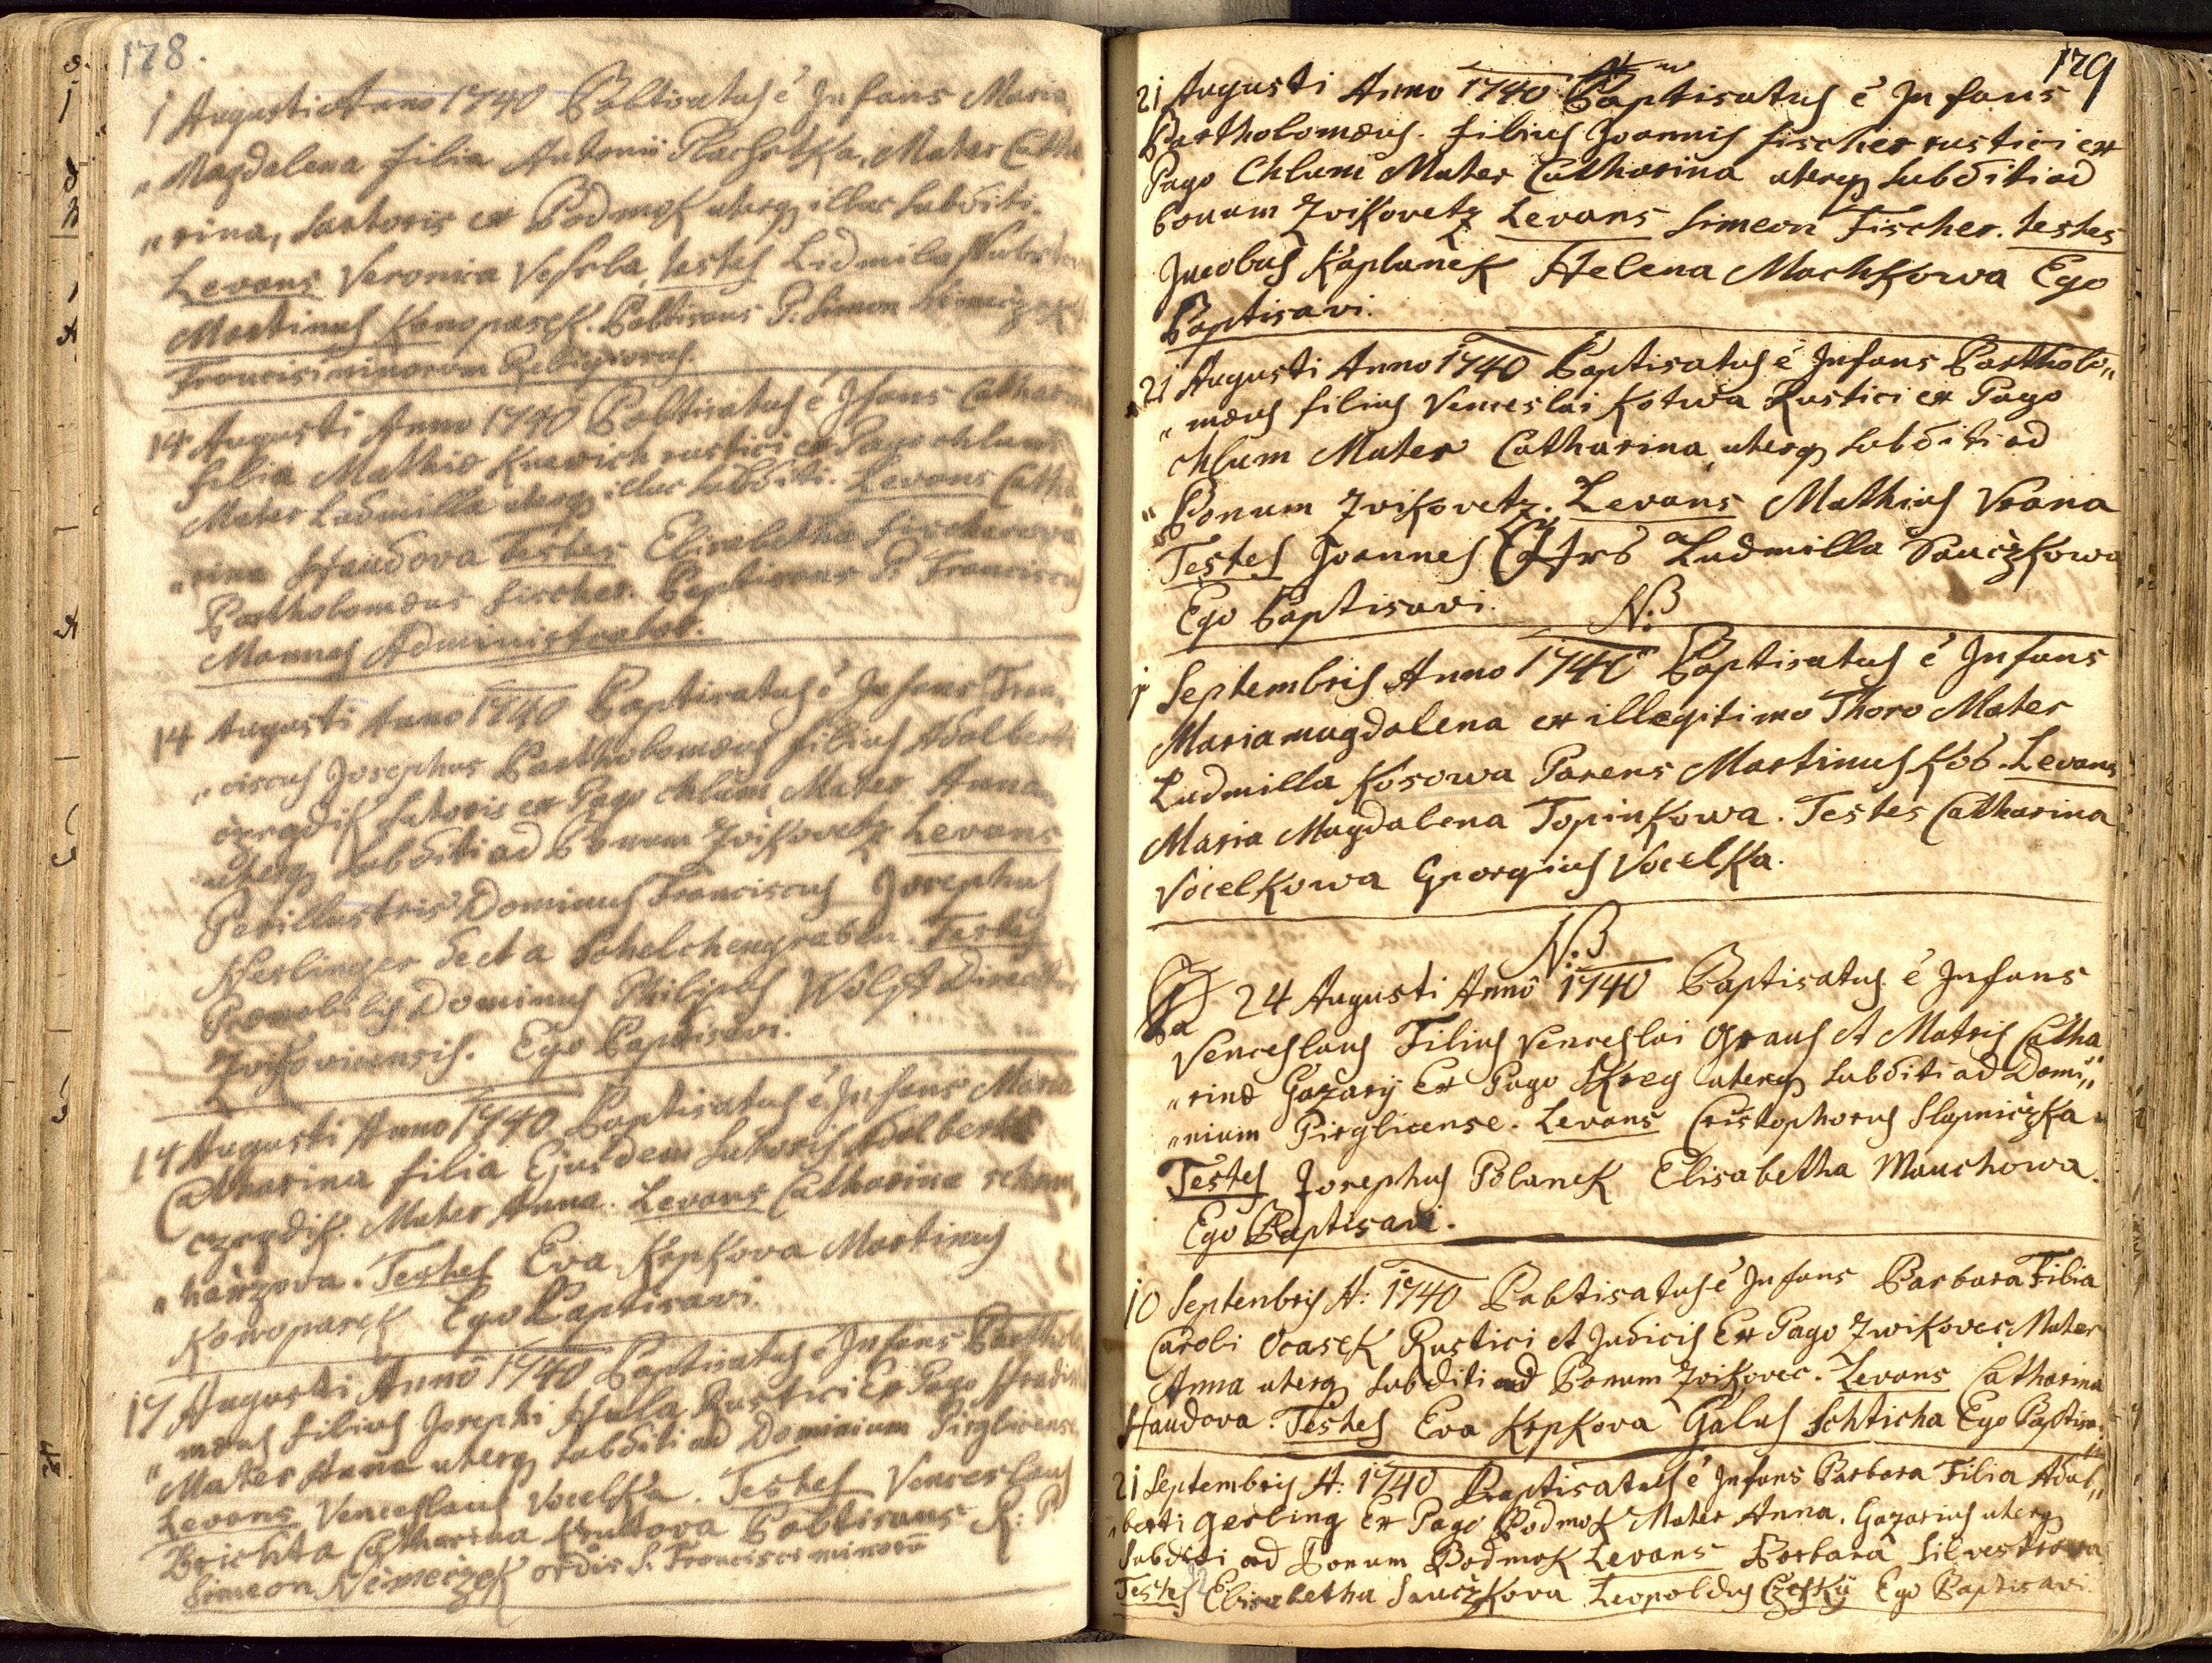 178.
1 Augusti Anno 1740 Babtisatus é Infans Maria
„Magdalena filia Antonii Mater Catha
„rina, sartoris ex Podmok uterq illuc subditi.
Levans Veronica testes Lidmila
Martinus Konopasek. Babtisans P: Simon
Francisci minorum Religiosus.
14 Augusti Anno 1740 Babtisatus é Ifans Cathar
filia Mathio rustici ex Pago chlum
Mater Ludmilla uterq illuc subditi. Levans Catha
„rina Haudova Testes Elisabetha
Bartholomæus fischer. Baptisans P. Franciscus
Mannes Administrator.
14 Augusti Anno 1740 Baptisatus é Infans Fran
„ciscus Josephus Bartholomæus filius Adalberti
sutoris ex Pago chlum Mater Anna
uterq subditi ad Bonum Zvikovetz Levans
Perillustris Dominus Franciscus Josephus
Testes
Prænobilis Dominus Philipus Director
Zvikovicensis. Ego Baptisavi.
14 Augusti Anno 1740 Baptisatus é Infans Maria
Catharina filia Ejusdem sutoris Adalberti
Mater Anna. Levans Catharina
Testes Eva Krpkova Martinus
Konopasek Ego Baptisavi.
17 Augusti Annô 1740 Baptisatus é Infans Bartholo
„mæus filius Josephi Rustici Ex Pago
Mater Anna uterq subditi ad Dominium Pirglicense
Levans Venceslaus Vocelka. Testes Venceslaus
Brichta Catharina Babtisans R: P
Simeon Nèmeczek ordis S. Francisci minorū
179
21 Augusti Anno 1740 Baptisatus é Infans
Bartholomæus. filius Joannis fischer rustici ex
Pago Chlum Mater Catharina uterq subditi ad
bonum Zvikovetz Levans Simeon Fischer. testes
Jacobus Kaplanek Helena Machkowa Ego
Baptisavi.
21 Augusti Anno 1740 Baptisatus é Infans Bartholo„
„mæus filius Venceslai Kotwa Rustici ex Pago
chlum Mater Catharina uterq subditi ad
„Bonum Zvikovetz. Levans Mathias Vrana
Testes Joannes Ludmilla Sauczkowa
Ego Baptisavi.
N:B
1 Septembris Anno 1740 Baptisatus é Infans
Maria magdalena ex illegitimo Thoro Mater
Ludmilla Kosowa Parens Martinus Kos. Levans
Maria Magdalena Topinkowa. Testes Catharina
Vocelkowa Georgius Vocelka.
N:B
24 Augusti Annô 1740 Baptisatus é Infans
Venceslaus Filius Venceslai Graus et Matris Catha
„rinæ Gazarij Ex Pago Skreg uterq subditi ad Domi„
„nium Pirglicense. Levans Cristophorus Slapniczka
Testes Josephus Polanek Elisabetha Mauchowa.
Ego Baptisavi.
10 Septenbris A: 1740 Babtisatus é Infans Barbara Filia
Caroli Ocasek Rustici et Judicis Ex Pago Zwikovec Mater
Anna uterq subditi ad Bonum Zvikovec. Levans Catharina
Haudova. Testes Eva Krpkova Galus Schticha Ego Baptisa:
21 Septembris A: 1740 Baptisatus é Infans Barbara Filia Adal„
„berti Gerling Ex Pago Podmok Mater Anna. Gazarius uterq
subditi ad Bonum Podmok Levans Barbara Silvestrowa
Testes Elisabetha Sauczkova Leopoldus Czesky Ego Baptisavi.